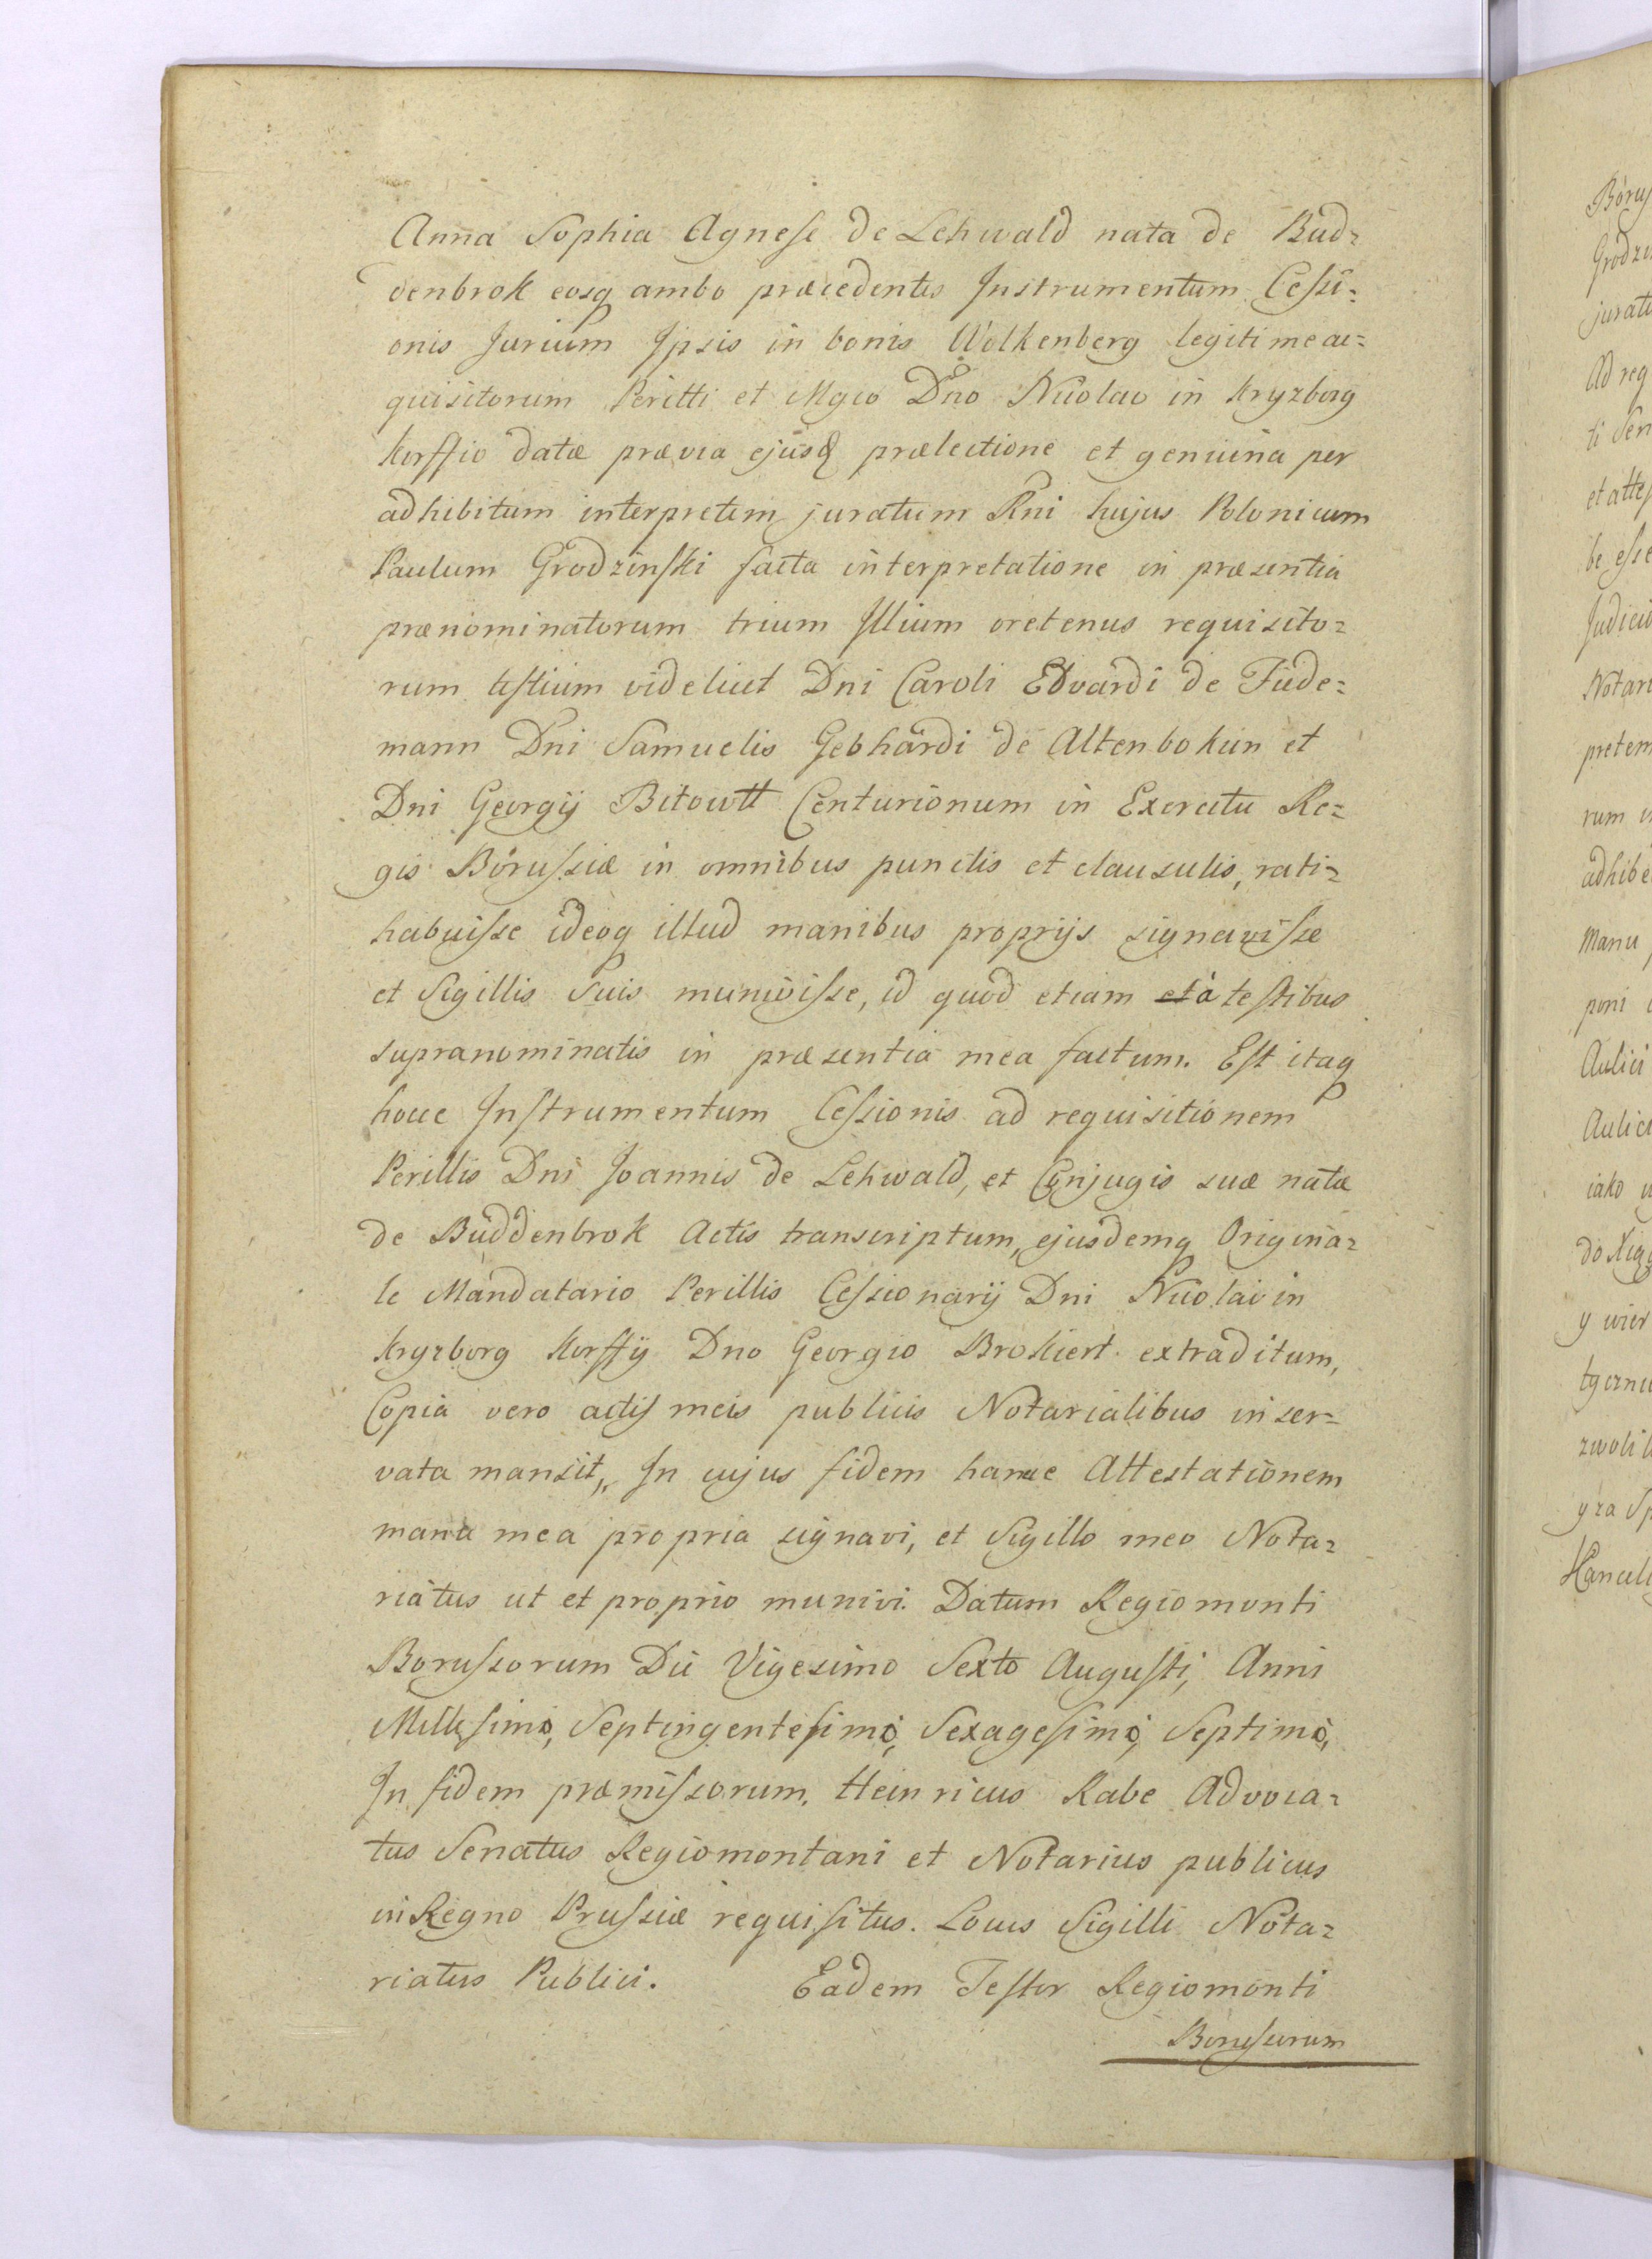 Anna Sophia Agnese de Lehwald nata de Bud=
denbrok eosq ambo præcedentis Instrumentum Cessi=
onis Jurium Ipsis in bonis Wolkenberg legitime ac=
quisitorum Perilli et Mgco Dno Nicolao in Kryzborg
Korffio datæ prævia ejusq prælectione et genuina per
adhibitum interpretem juratum Rni hujus Polonicum
Paulum Grodzinski facta interpretatione in præsentia
prænominatorum trium Illium oretenus requisito=
rum testium videlicet Dni Caroli Edvardi de Tüde=
mann Dni Samuelis Gebhardi de Altenbokun et
Dni Georgij Bitowtt Centurionum in Exercitu Re=
gis Borussiæ in omnibus punctis et clausulis, rati=
habuisse ideoq illud manibus proprijs signavisse
et Sigillis Suis munivisse, id quod etiam et à testibus
supranominatis in præsentia mea factum. Est itaq
hocce Instrumentum Cessionis ad requisitionem
Perillis Dni Joannis de Lehwald, et Conjugis suæ natæ
de Buddenbrok Actis transcriptum, ejusdemq Origina=
le Mandatario Perillis Cessionarij Dni Nicolai in
Kryzborg Korffij Dno Georgio Brokiert extraditum,
Copia vero actis meis publicis Notarialibus inser=
vata mansit, In cujus fidem hancce Attestationem
manu mea propria signavi, et Sigillo meo Nota=
riatus ut et proprio munivi. Datum Regiomonti
Borussorum Die Vigesimo Sexto Augusti, Anni
Millesimo, Septingentesimo, Sexagesimo, Septimo,
In fidem præmissorum. Heinricus Rabe Advoca=
tus Senatus Regiomontani et Notarius publicus
in Regno Prussiæ requisitus. Locus Sigilli Nota=
riatus Publici. Eadem Testor Regiomonti
Borussorum
Borus
Grodzi
jurat
Ad req
ti Ser
et attes
be esse
Judicio
Notari
pretem
rum i
adhibe
manu
poni
Aulici
Aulic
iako
do Xig
y wier
tyczni
zwoli
y za Sp
Kancel